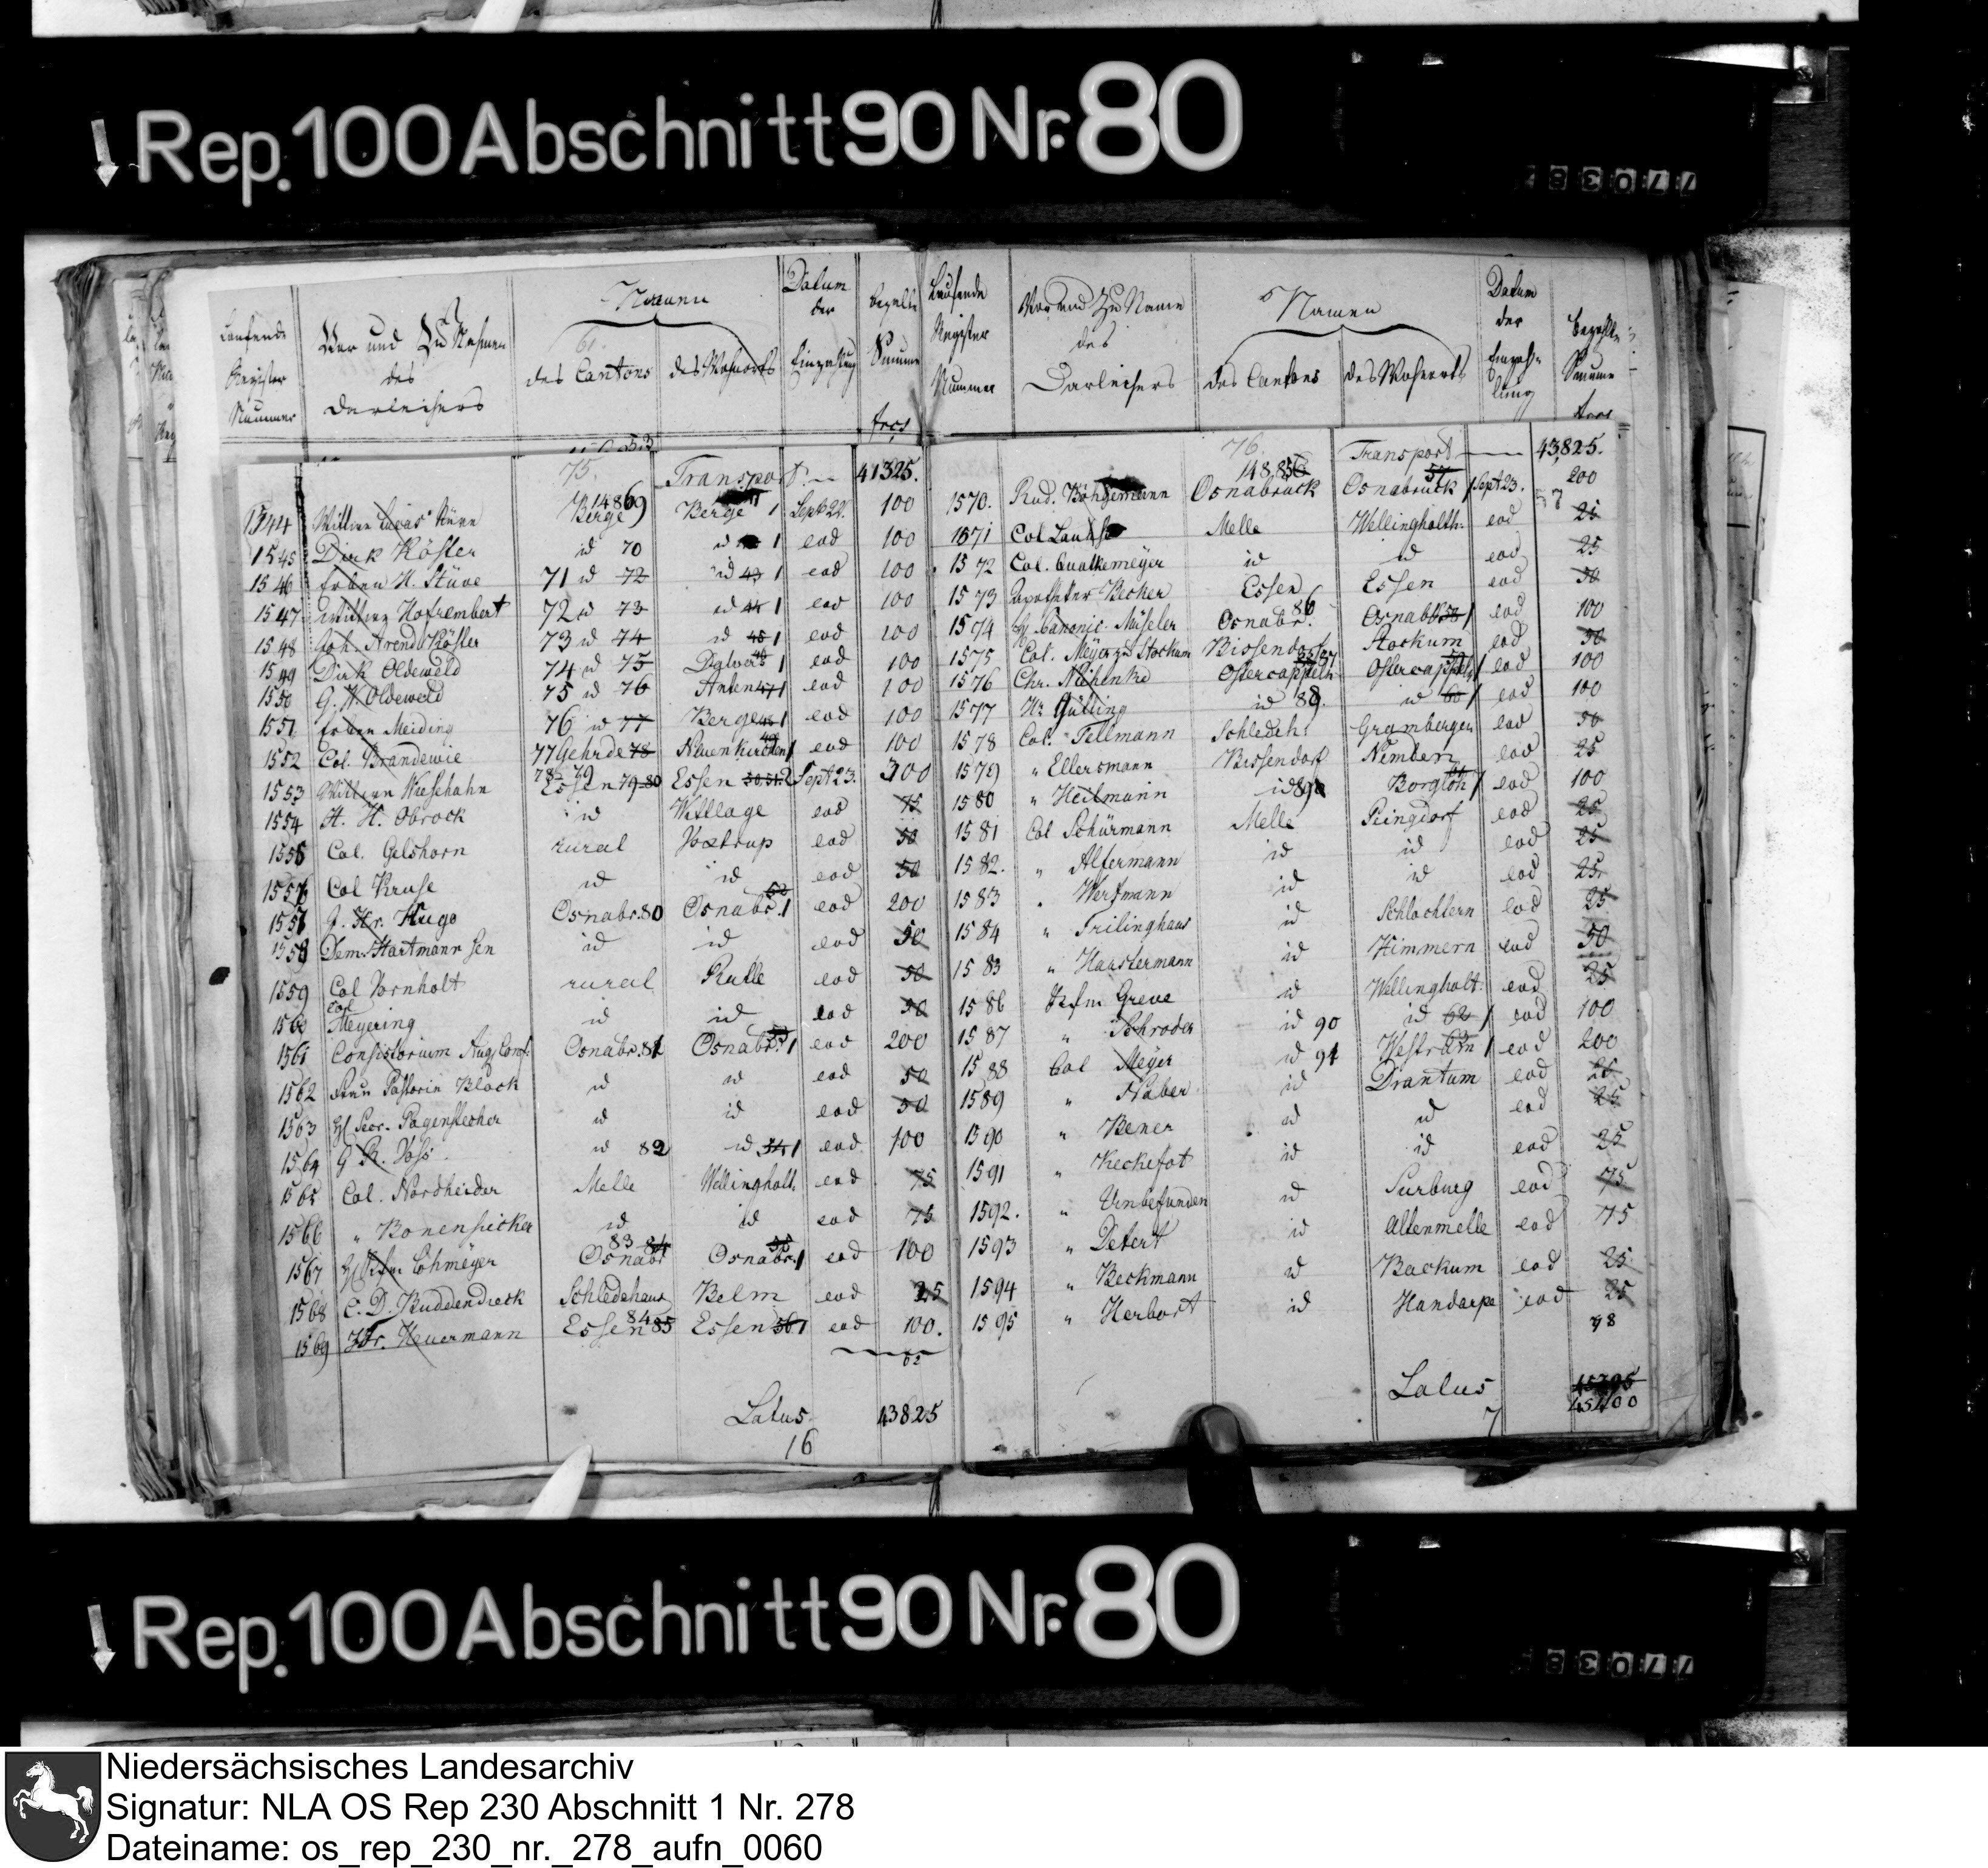 Rep. 100 Abschnitt 90 Nr. 80
Laufende Register Nummer
Vor und Zu Nahmen des Darleihers
Namen
des Cantons
des Wohnorts
Datum der Einzahlung
bezahlte Summe
frcs
75. Transport. 41325.
1544 Wittwe Lucas Berge 14869 Berge 1 Sept 22. 100
1545 Dirk Kösler id 70 id 1 eod 100
1546 Erben H. Stüve 71 id 72 id 43 1 eod 100
1547 Wittwe Hofrembert 72 id 73 id 44 1 eod 100
1548 Joh. Arend Kösler 73 id 74 id 45 1 eod 100
1549 Dirk Oldeweld 74 id 75 1 eod 100
1550 G. W. Oldeweld 75 id 76 Anten 47 1 eod 100
1551 Erben Meiding 76 id 77 Berge 48 1 eod 100
1552 Col. Brandewie 77 Gehrde 78 Neuenkirchen 49 1 eod 100
1553 Wittwe Wieschahn 78 79 Essen 79 80 Essen 50.51.2 Sept 23. 300
1554 H. H. Obrock id Wittlage eod 75
1555 Col. Gelshorn rural Voxtrup eod 50
Col Kruse id id eod 50
G. Hr. Hugo Osnabr. 80 Osnabr. 52 1 eod 200
1558 Dem. Hartmann sen id id eod 50
1559 Col Vornholt rural Rulle eod 50
1560 Col Meyering id id eod 50
1561 Consistorium Aug. Conf. Osnabr. 81 Osnabr. 53 1 eod 200
1562 Frau Pastorin Block id id eod 50
1563 H Secr. Pagenstecher id id eod 50
1564 G R. Voss id 82 id 54 1 eod 100
1565 Col. Nordheider Melle Wellingholth. eod 75
1566 " Bonensicker id id eod 75
1567 Lohmeyer 83 84 Osnabr Osnabr. 55 1 eod 100
1568 C. D. Buddendieck Schledehaus Belm eod 25
1569 Hr. Heuermann Essen 84 85 Essen 56 1 eod 100.
62
Latus 43825
16
Laufende Register Nummer
Vor und Zu Name des Darleihers
Namen
des Cantons
des Wohnorts
Datum der Einzahlung
Bezahlte Summe
76. Transport 43,825.
1570. Rud. Böhgemann 148.85 Osnabrück Osnabrück 57 1 Sept 23. 200
1571 Col Melle Wellingholth. eod 25
1572 Col. Quatkemeyer id id eod 25
1573 Apotheker Becker Essen Essen eod 50
1574 H Canonic. Müseler Osnabr. 86 Osnabr. 58 1 eod 100
1575 Col. Meyer zu Stockum Bissendorf Stockum eod 50
1576 Chr. Nühenke Ostercappeln 87 Ostercappeln 59 1 eod 100
1577 Hr Gülling id 88. id 60 1 eod 100
1578 Col. Tellmann Schledeh. Grambergen eod 50
1579 " Ellersmann Bissendorf Nemden eod 25
1580 " Heilmann id 89 Borgloh 61 1 eod 100
1581 Col Schürmann Melle eod 25
1582. " Altermann id id eod 25
1583 " Wersmann id id eod 25
1584 " Frilinghaus id Schlochtern eod 25
1583 " Harstermann id Himmern eod 50
1586 Greve id Wellingholt. eod 25
1587 " Schroder id 90 id 62 1 eod 100
1588 Col Meyer id 91 1 eod 200
1589 " Naber id Drantum eod 25
1590 " Bener id id eod 25
1591 " Keckefot id id eod 25
1592. " Unbefunden id eod 75
1593 " Detert id Altenmelle eod 75
1594 " Beckmann id Backum eod 25
1595 " Herbort id Handarpe eod 25
98
Latus 45400
7
Rep. 100 Abschnitt 90 Nr. 80
Niedersächsisches Landesarchiv
Signatur: NLA OS Rep 230 Abschnitt 1 Nr. 278
Dateiname: os_rep_230_nr._278_aufn_0060